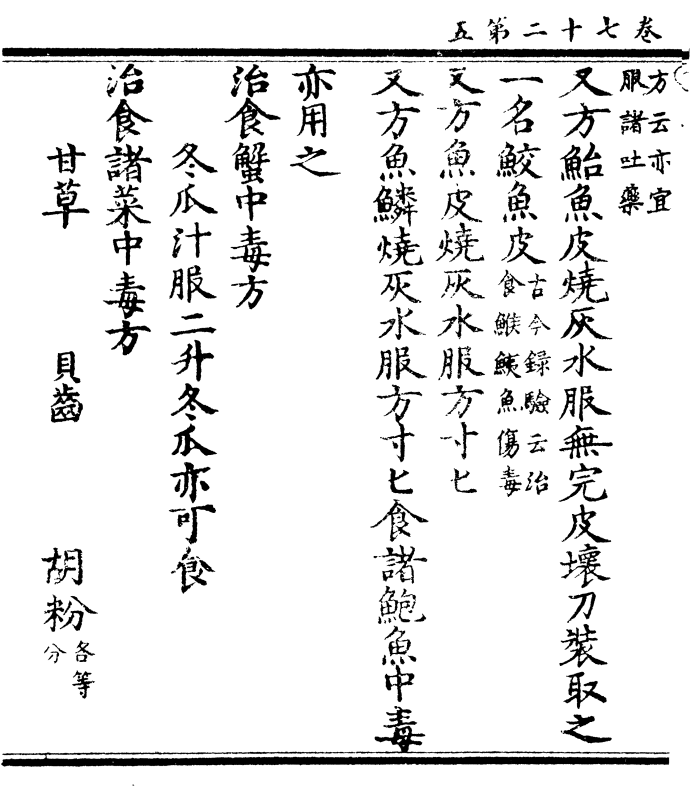 五第二十七卷
方云亦宜
服諸吐藥
又方鮐魚皮燒灰水服無完皮壞刀裝取之
一名鮫魚皮古今録驗云治食鯸鮧魚傷毒
又方魚皮燒灰水服方寸匕
又方魚鱗燒灰水服方寸匕食諸鮑魚中毒
亦用之
治食蟹中毒方
冬瓜汁服二升冬瓜亦可食
治食諸菜中毒方
甘草 貝齒 胡粉各等分